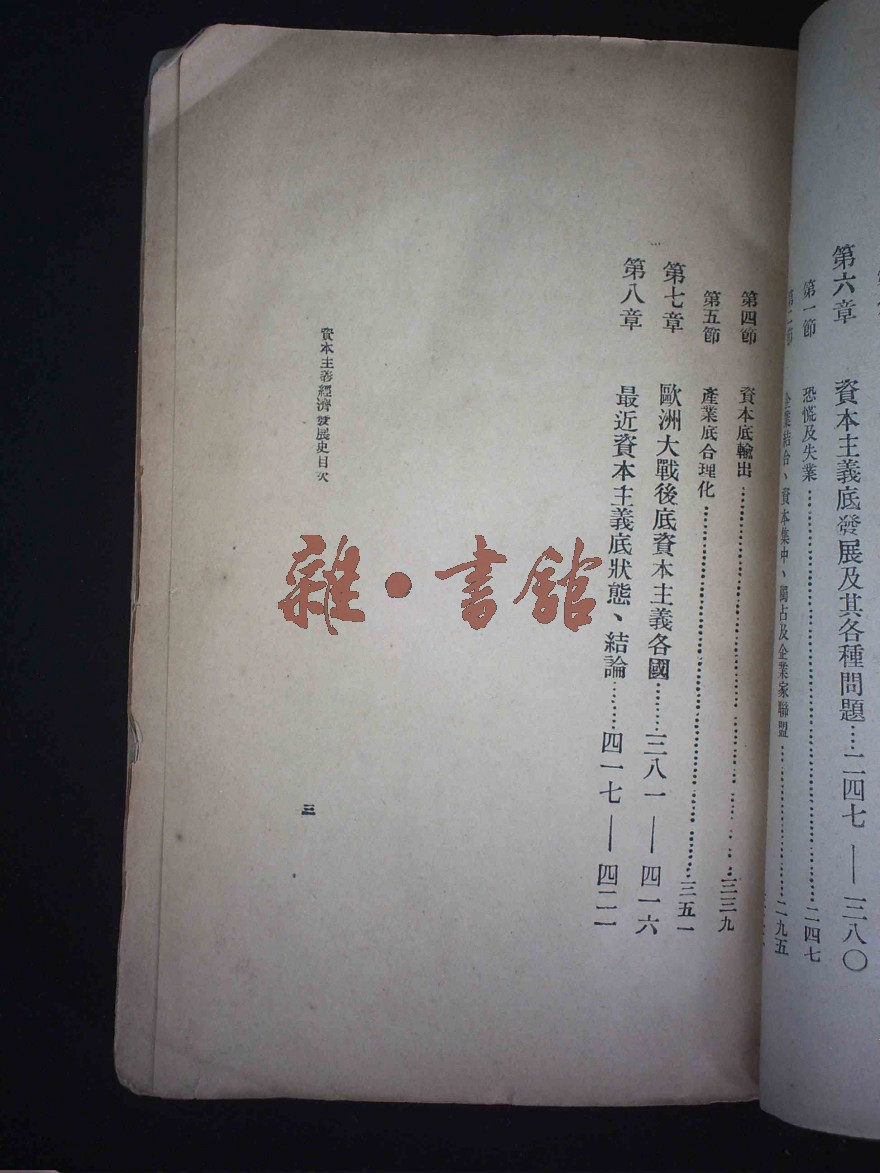 第六章　資本主義底發展及其各種問題……二四七——三八〇
第一節　恐慌及失業……二四七
第二節　企業結合、資本集中、獨占及企業家聯盟……二九五
第四節　資本底輸出……三三九
第五節　產業底合理化……三五一
第七章　歐洲大戰後底資本主義各國……三八一——四一六
第八章　最近資本主義底狀態、結論……四一七——四二一
資本主義經濟發展史目次
三
雜・書館